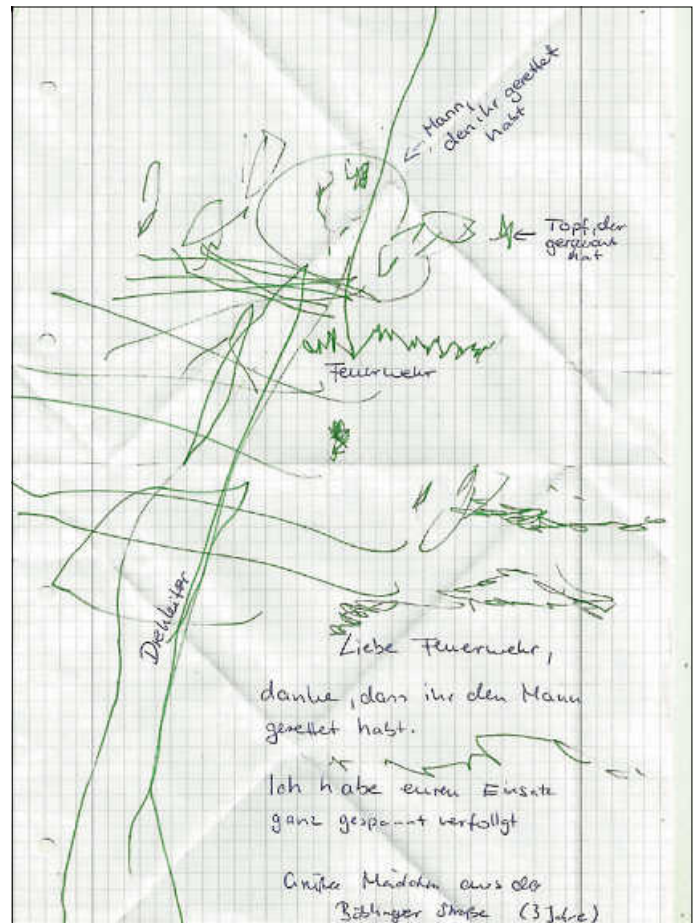 Mann,
den ihr gerettet
habt
Topf, der
geraucht
hat
Feuerwehr
Drehleiter
Liebe Feuerwehr,
danke, dass ihr den Mann
gerettet habt.
Ich habe euren Einsatz
ganz gespannt verfolgt
Mädchen aus der
Böblinger Straße (3 Jahre)